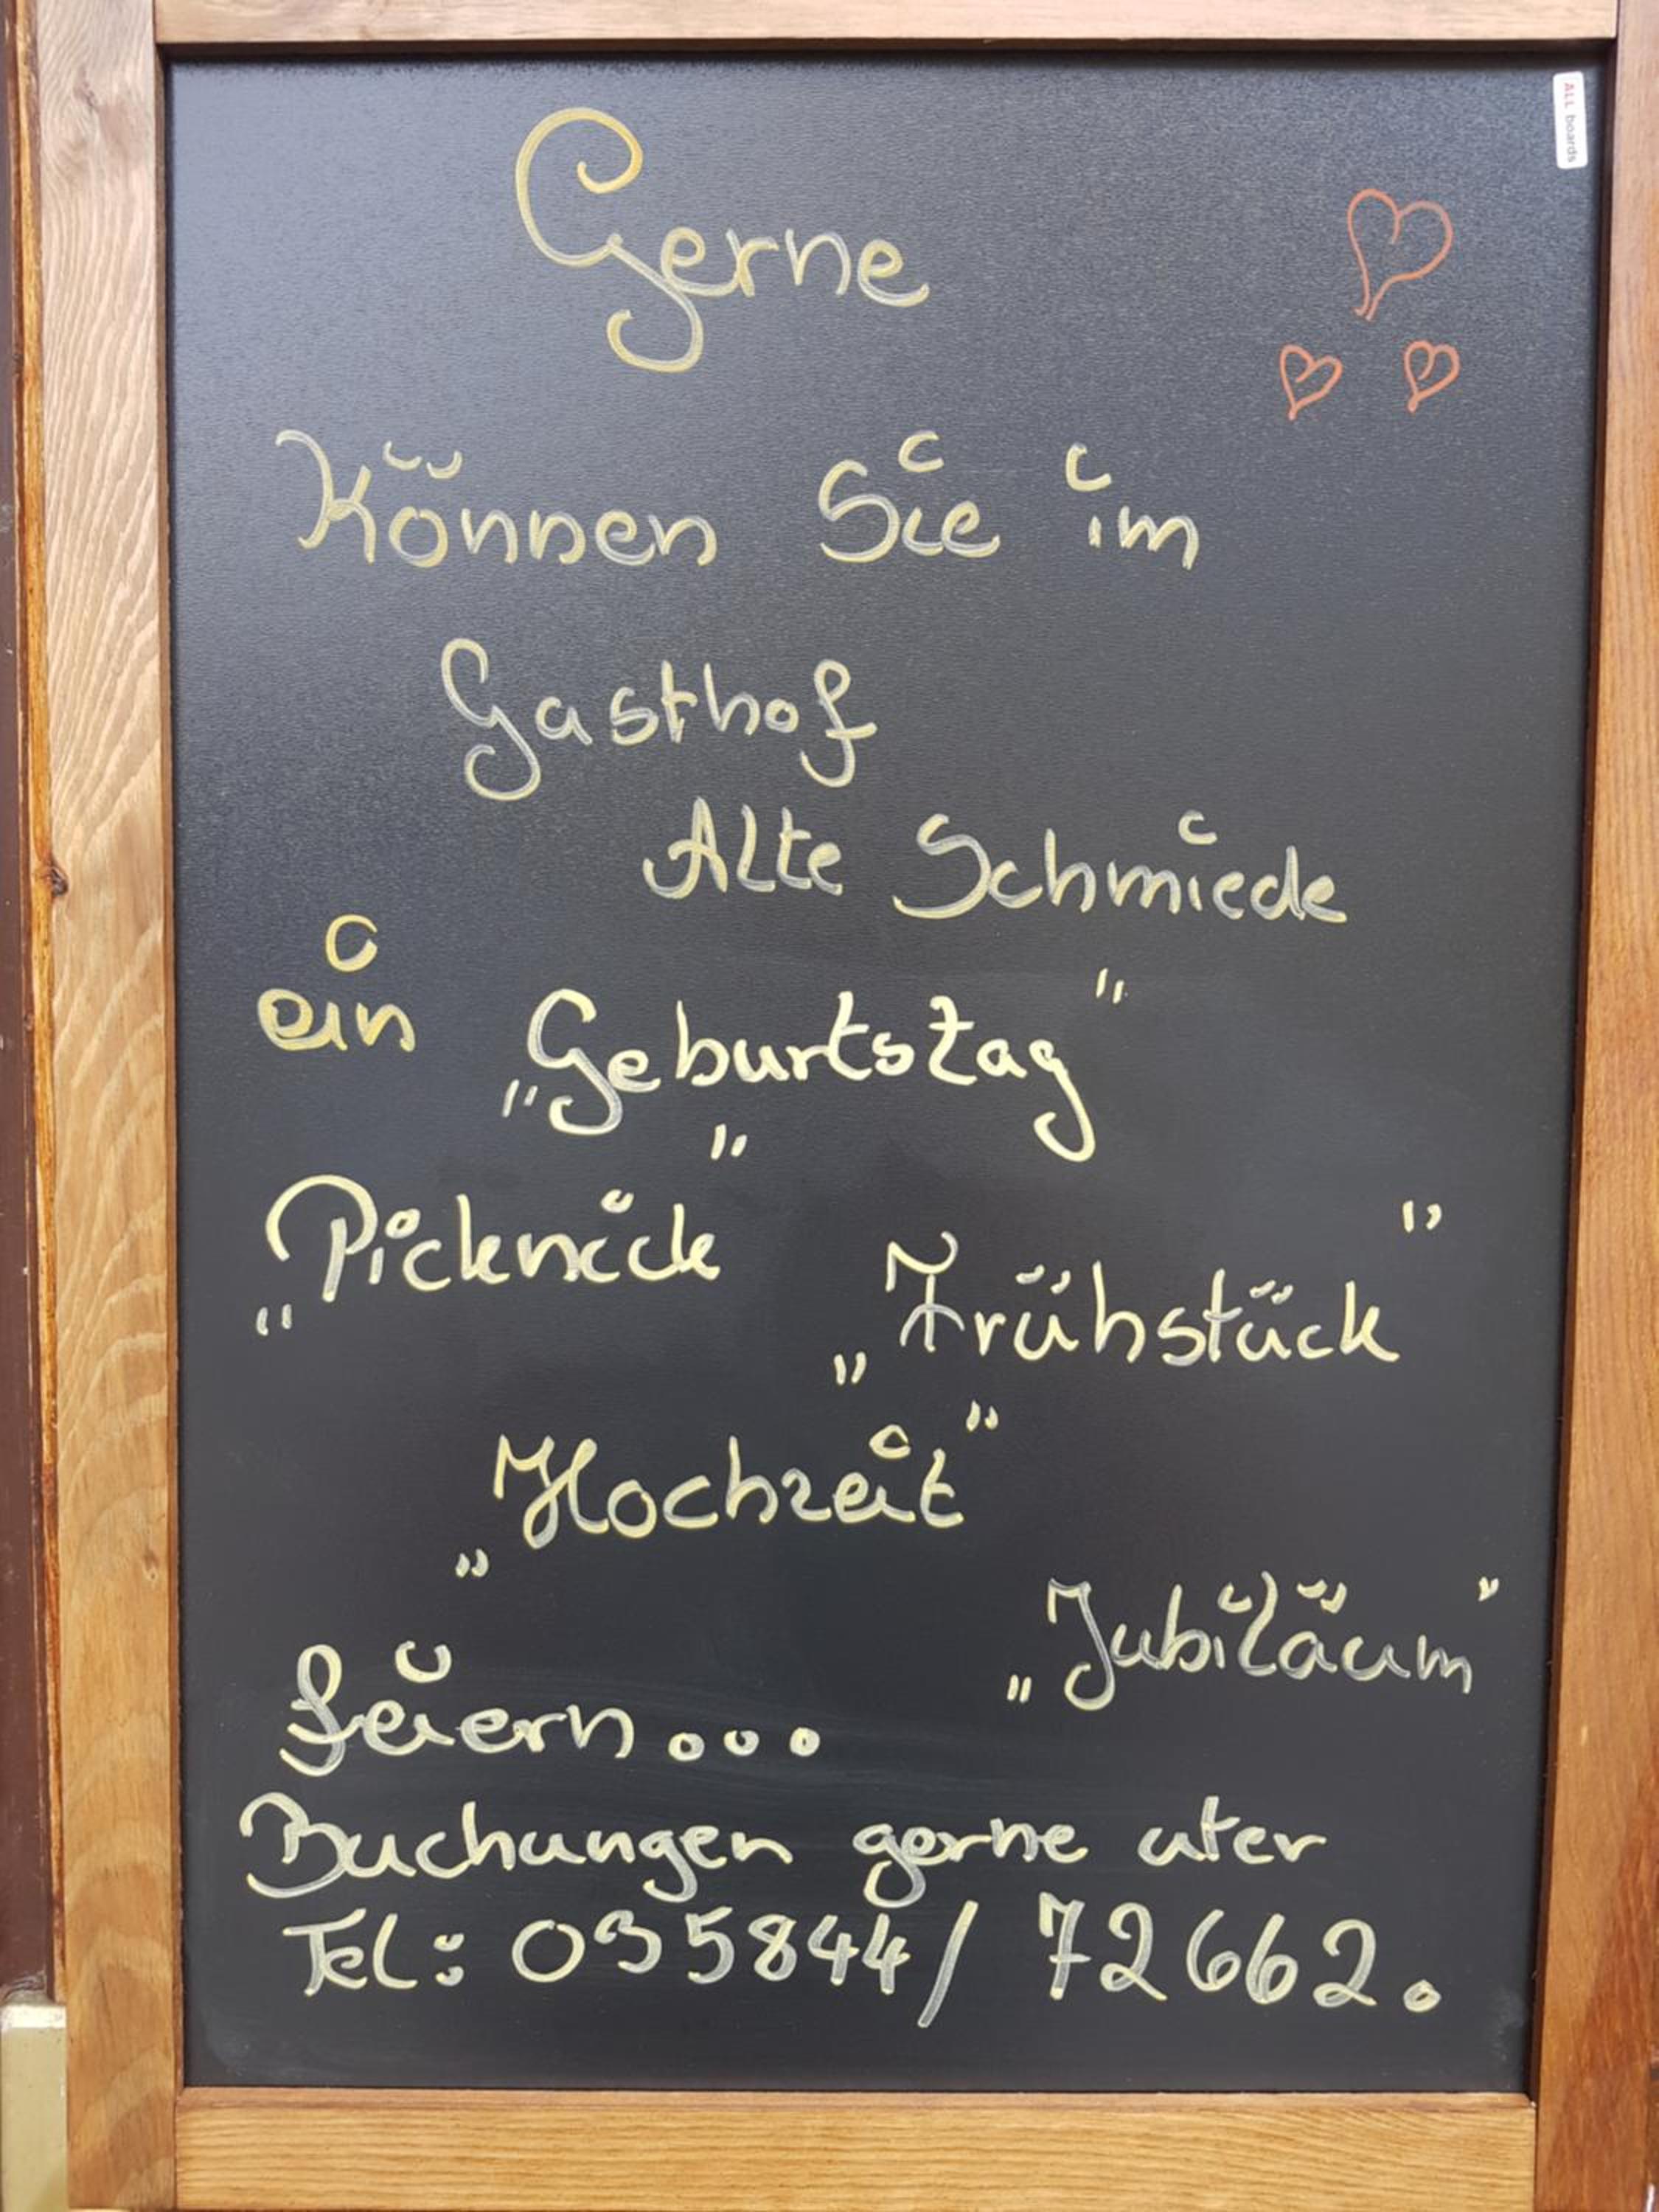 Gerne
Können Sie im
Gasthof
Alte Schmiede
ein „Geburtstag"
„Picknick" „Frühstück"
„Hochzeit"
„Jubiläum"
feiern...
Buchungen gerne uter
Tel: 035844/ 72662.
ALL boards